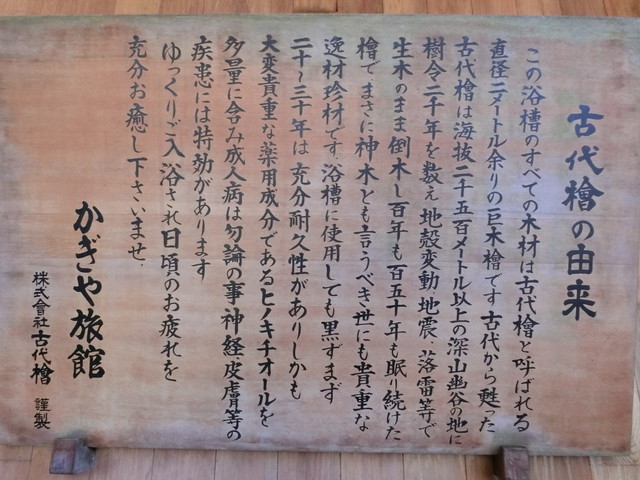 古代檜の由来
この浴槽のすべての木材は古代檜と呼ばれる
直径二メートル余りの巨木檜です古代から甦った
古代檜は海抜二千五百メートル以上の深山幽谷の地に
樹令二千年を数え地殻変動、地震、落雷等で
生木のまま倒木し百年も百五十年も眠り続けた
檜で、まさに神木とも言うべき世にも貴重な
逸材珍材です、浴槽に使用しても黒ずまず
二十〜三十年は充分耐久性がありしかも
大変貴重な薬用成分であるヒノキチオールを
多量に含み成人病は勿論の事神経、皮膚等の
疾患には特効があります
ゆっくりご入浴され日頃のお疲れを
充分お癒し下さいませ.
かぎや旅館
株式會社古代檜 謹製